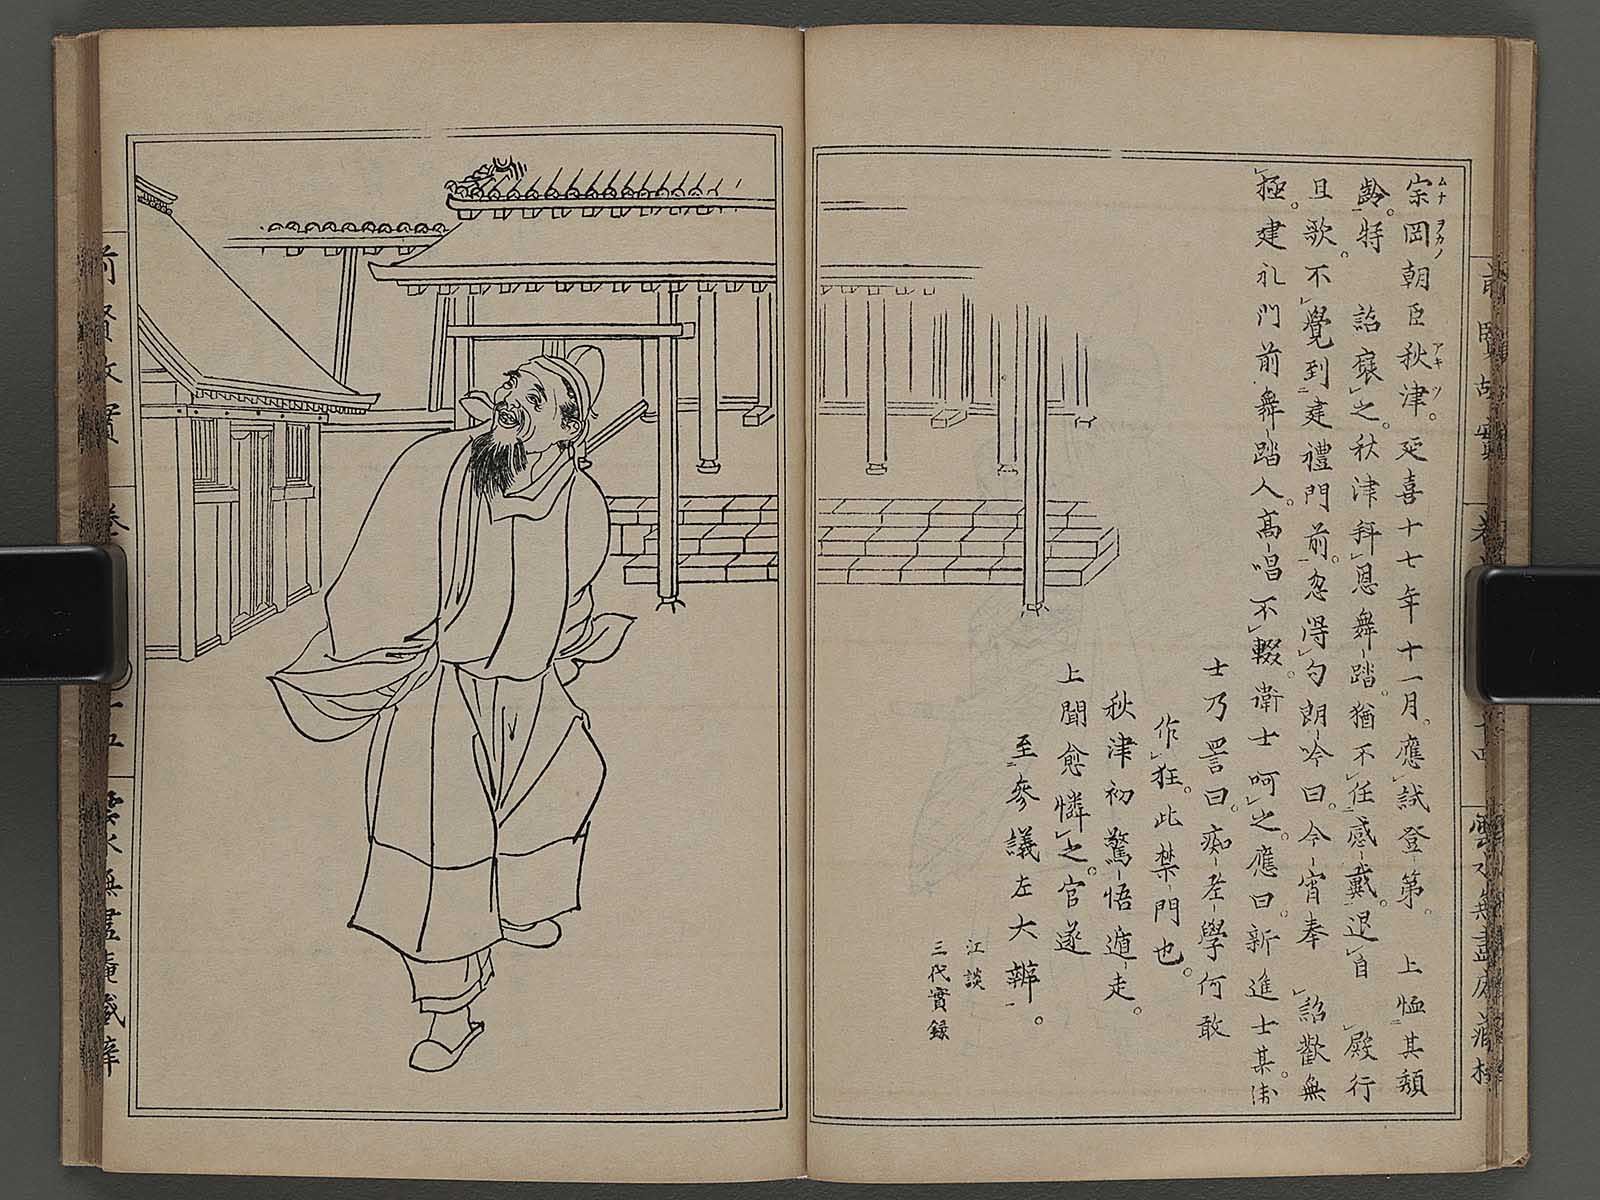 宗岡朝臣秋津。延喜十七年十一月。應試登第。上恤其頽
ムナヲカノ アキツ
齡。特 詔褒之。秋津拜恩舞踏。猶不任感戴。退自 殿行
且歌。不覺到建禮門前。忽得句朗吟曰。今宵奉 詔歡無
極。建礼門前舞踏人。高唱不輟。衛士呵之。應曰。新進士某。衛
士乃詈曰。痴老學何敢
作狂。此禁門也。
秋津初驚悟遁走。
上聞愈憐之。官遂
至參議左大辨。
江談
三代實録
前賢故實
雲水無盡庵藏梓